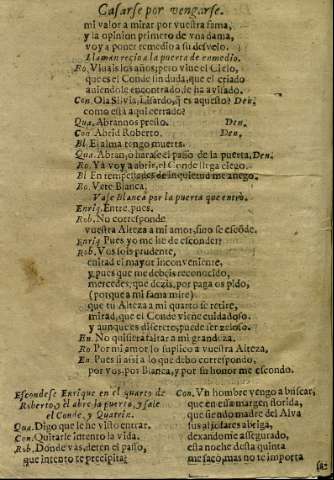 Casarse por vengarse.
mi valor a mirar por vuestra fama,
y la opinion primero de vna dama,
voy a poner remedio a su desvelo.
Llaman recio a la puerta de enmedio.
Ro. Viuais los años; pero viue el Cielo,
que es el Conde sin duda, que el criado
auiendole encontrado, le ha auisado.
Con. Ola Siluia, Lisardo, q̃ es aquesto? Den.
como està aqui cerrado?
Qua. Abrannos presto. Den.
Con Abrid Roberto. Den.
Bl. El alma tengo muerta.
Qua. Abran, o harase el paño de la puerta. Den.
Ro. Ya voy a abrir, el Conde llega ciego.
Bl En tempestades de inquietud me anego.
Ro. Vete Blanca.
Vase Blanca por la puerta que entrò.
Enriq. Entre, pues.
Rob. No corresponde
vuestra Alteza a mi amor, sino se escõde.
Enriq Pues yo me he de esconder?
Rob. Vos sois prudente,
euitad el mayor inconveniente,
y pues que me debeis reconocido,
mercedes, que dezis, por paga os pido,
(porque a mi fama mire)
que tu Alteza a mi quarto se retire,
mirad, que el Conde viene cuidadoso.
y aunque es discreto, puede ser zeloso.
En. No quisiera faltar a mi grandeza.
Ro Por mi amor lo suplico a vuestra Alteza,
En. Pues si assi a lo que debo correspondo,
por vos, por Blanca, y por su honor me escondo.
Escondese Enrique en el quarto de
Roberto, y el abre la puerta, y sale
el Conde, y Quatrin.
Qua. Digo que le he visto entrar.
Con. Quitarle intento la vida.
Rob. Donde vas, deten el passo,
que intento te precipita?
Con. Vn hombre vengo a buscar,
que en essa margen florida,
que siendo madre del Alva
sus aljofares abriga,
dexandome assegurado,
essa noche desta quinta
me sacò, mas no te importa